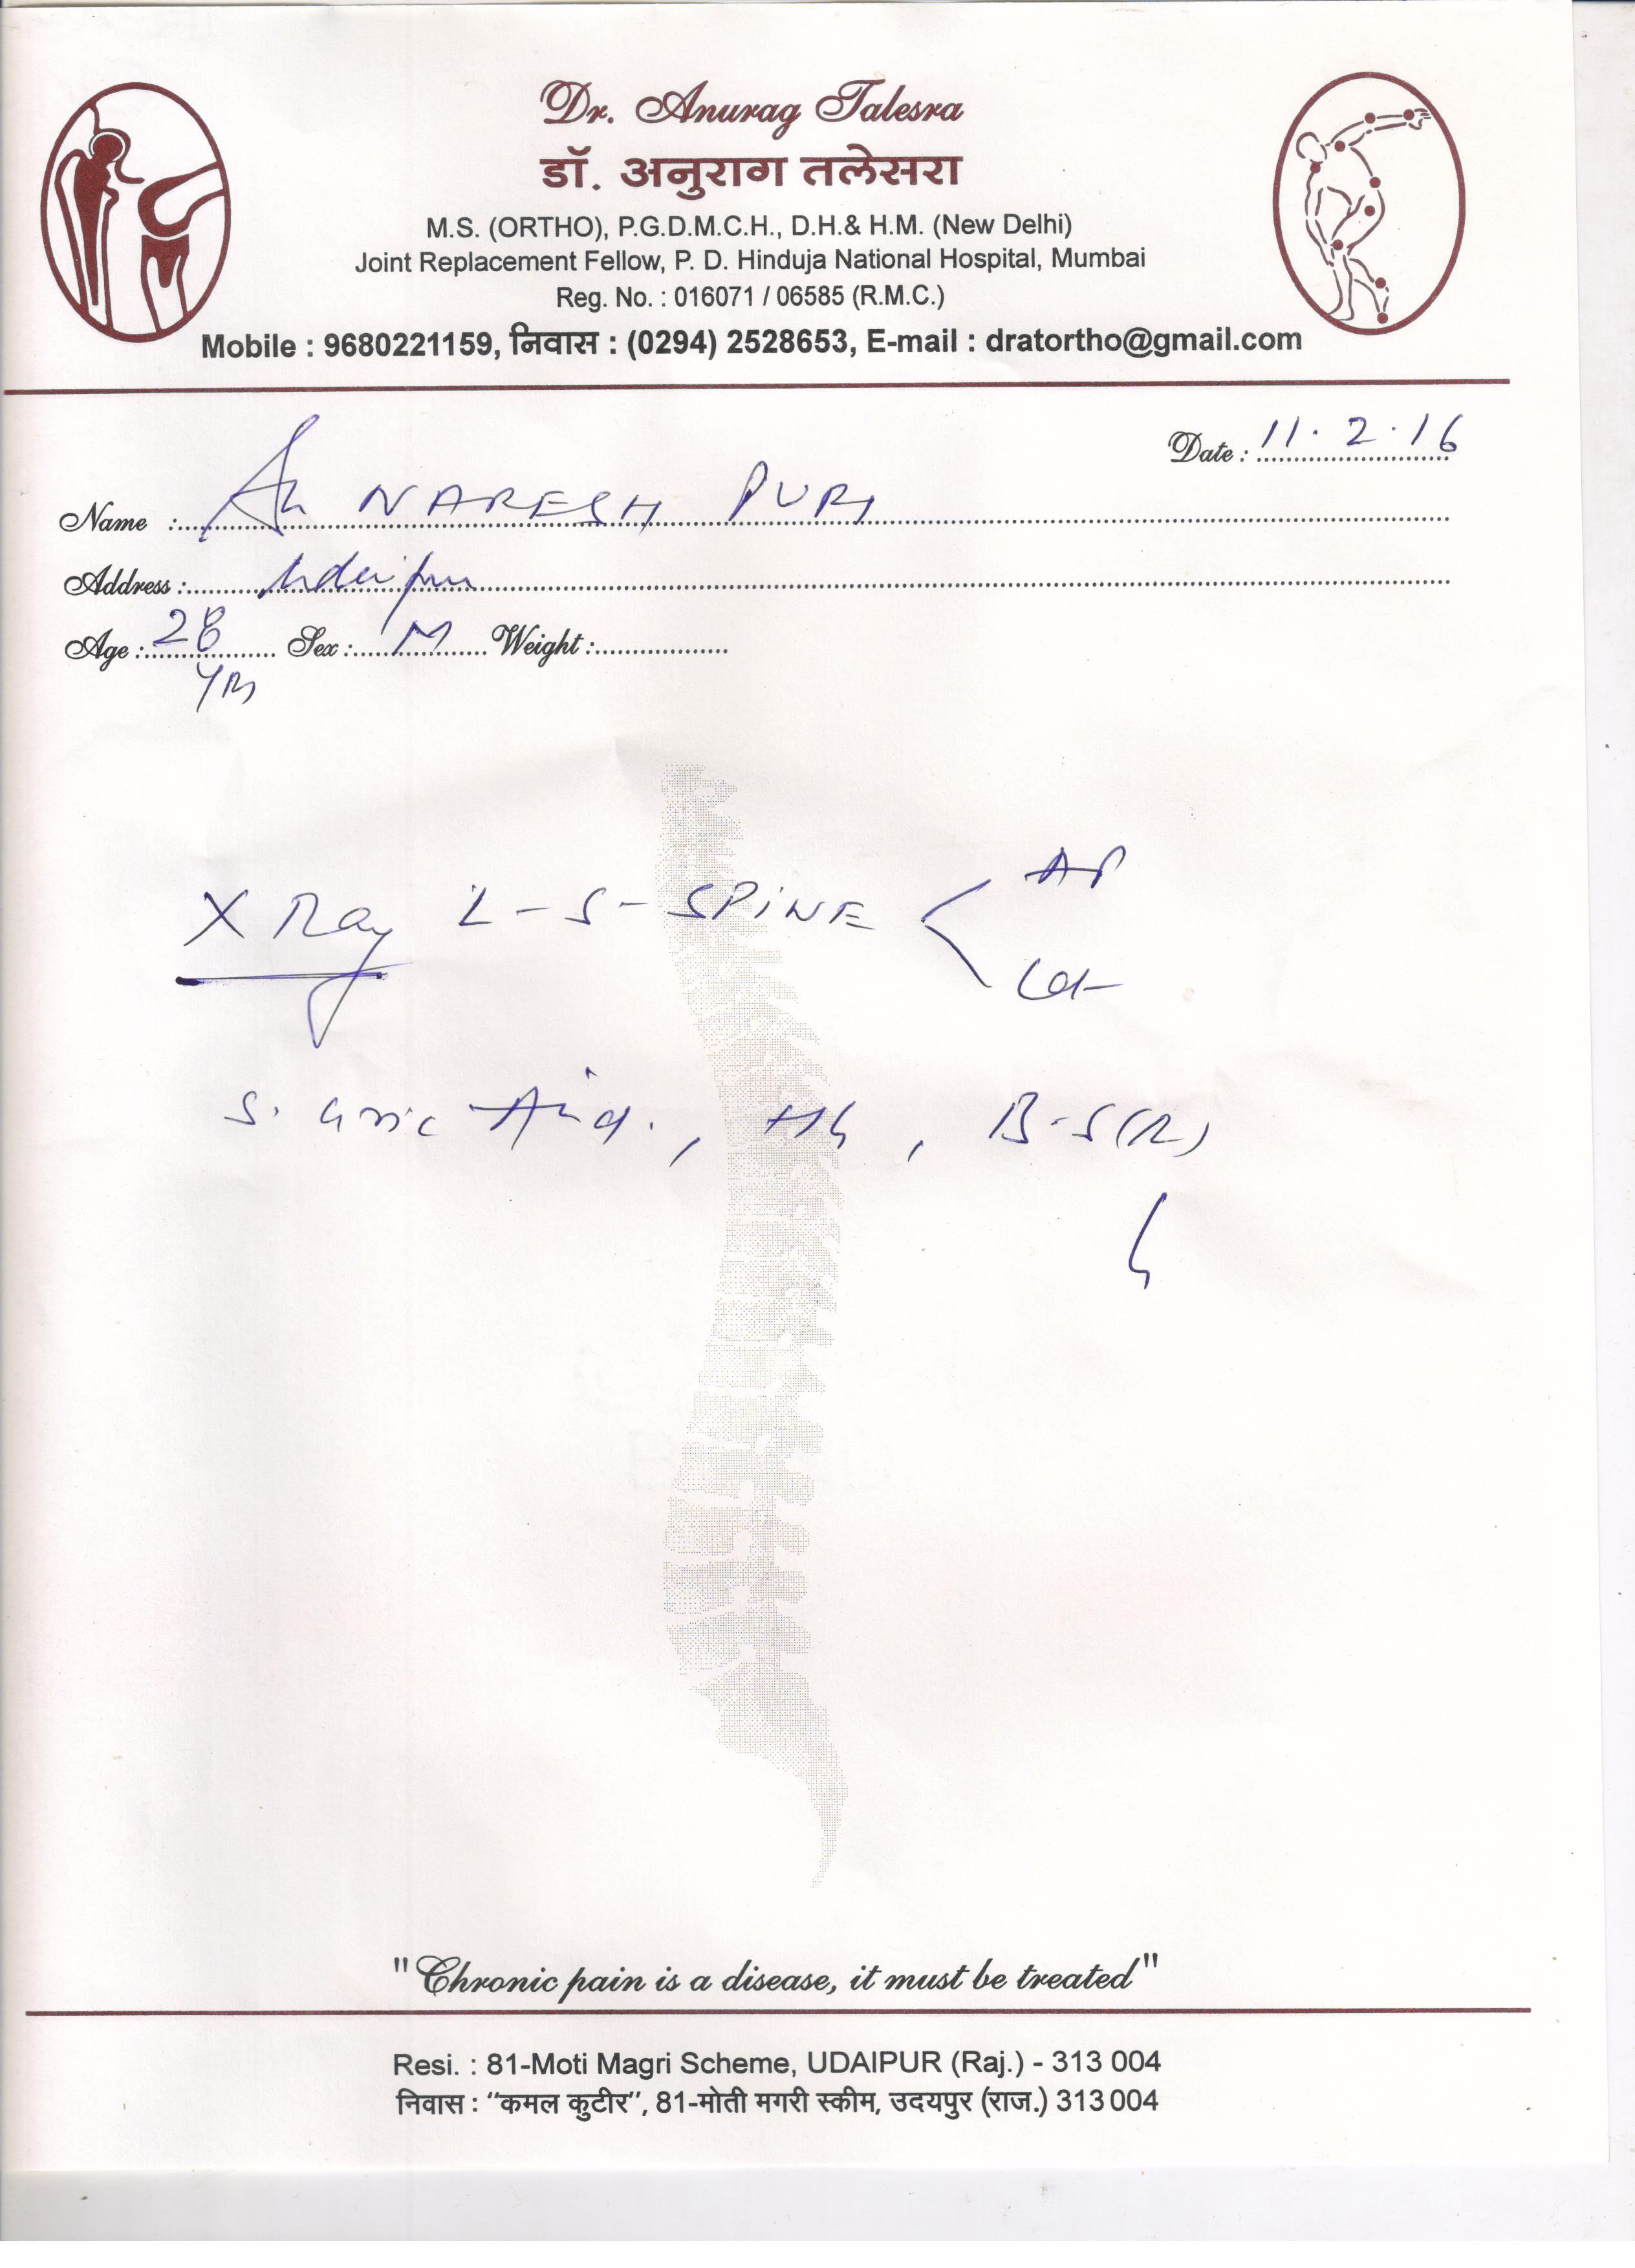 Dr. Anurag Talesra
डॉ. अनुराग तलेसरा
M.S. (ORTHO), P.G.D.M.C.H., D.H.& H.M. (New Delhi)
Joint Replacement Fellow, P. D. Hinduja National Hospital, Mumbai
Reg. No. : 016071 / 06585 (R.M.C.)
Mobile : 9680221159, निवास : (0294) 2528653, E-mail : dratortho@gmail.com
Date : 11.2.16
Name : NARESH PURI
Address : Udaipur
Age : 28 Sex : M Weight :
Yrs
X Ray L-S-SPINE < AP
Lat
S. Uric Acid., Hb, B-S(R)
"Chronic pain is a disease, it must be treated"
Resi. : 81-Moti Magri Scheme, UDAIPUR (Raj.) - 313 004
निवास : “कमल कुटीर”, 81-मोती मगरी स्कीम, उदयपुर (राज.) 313 004